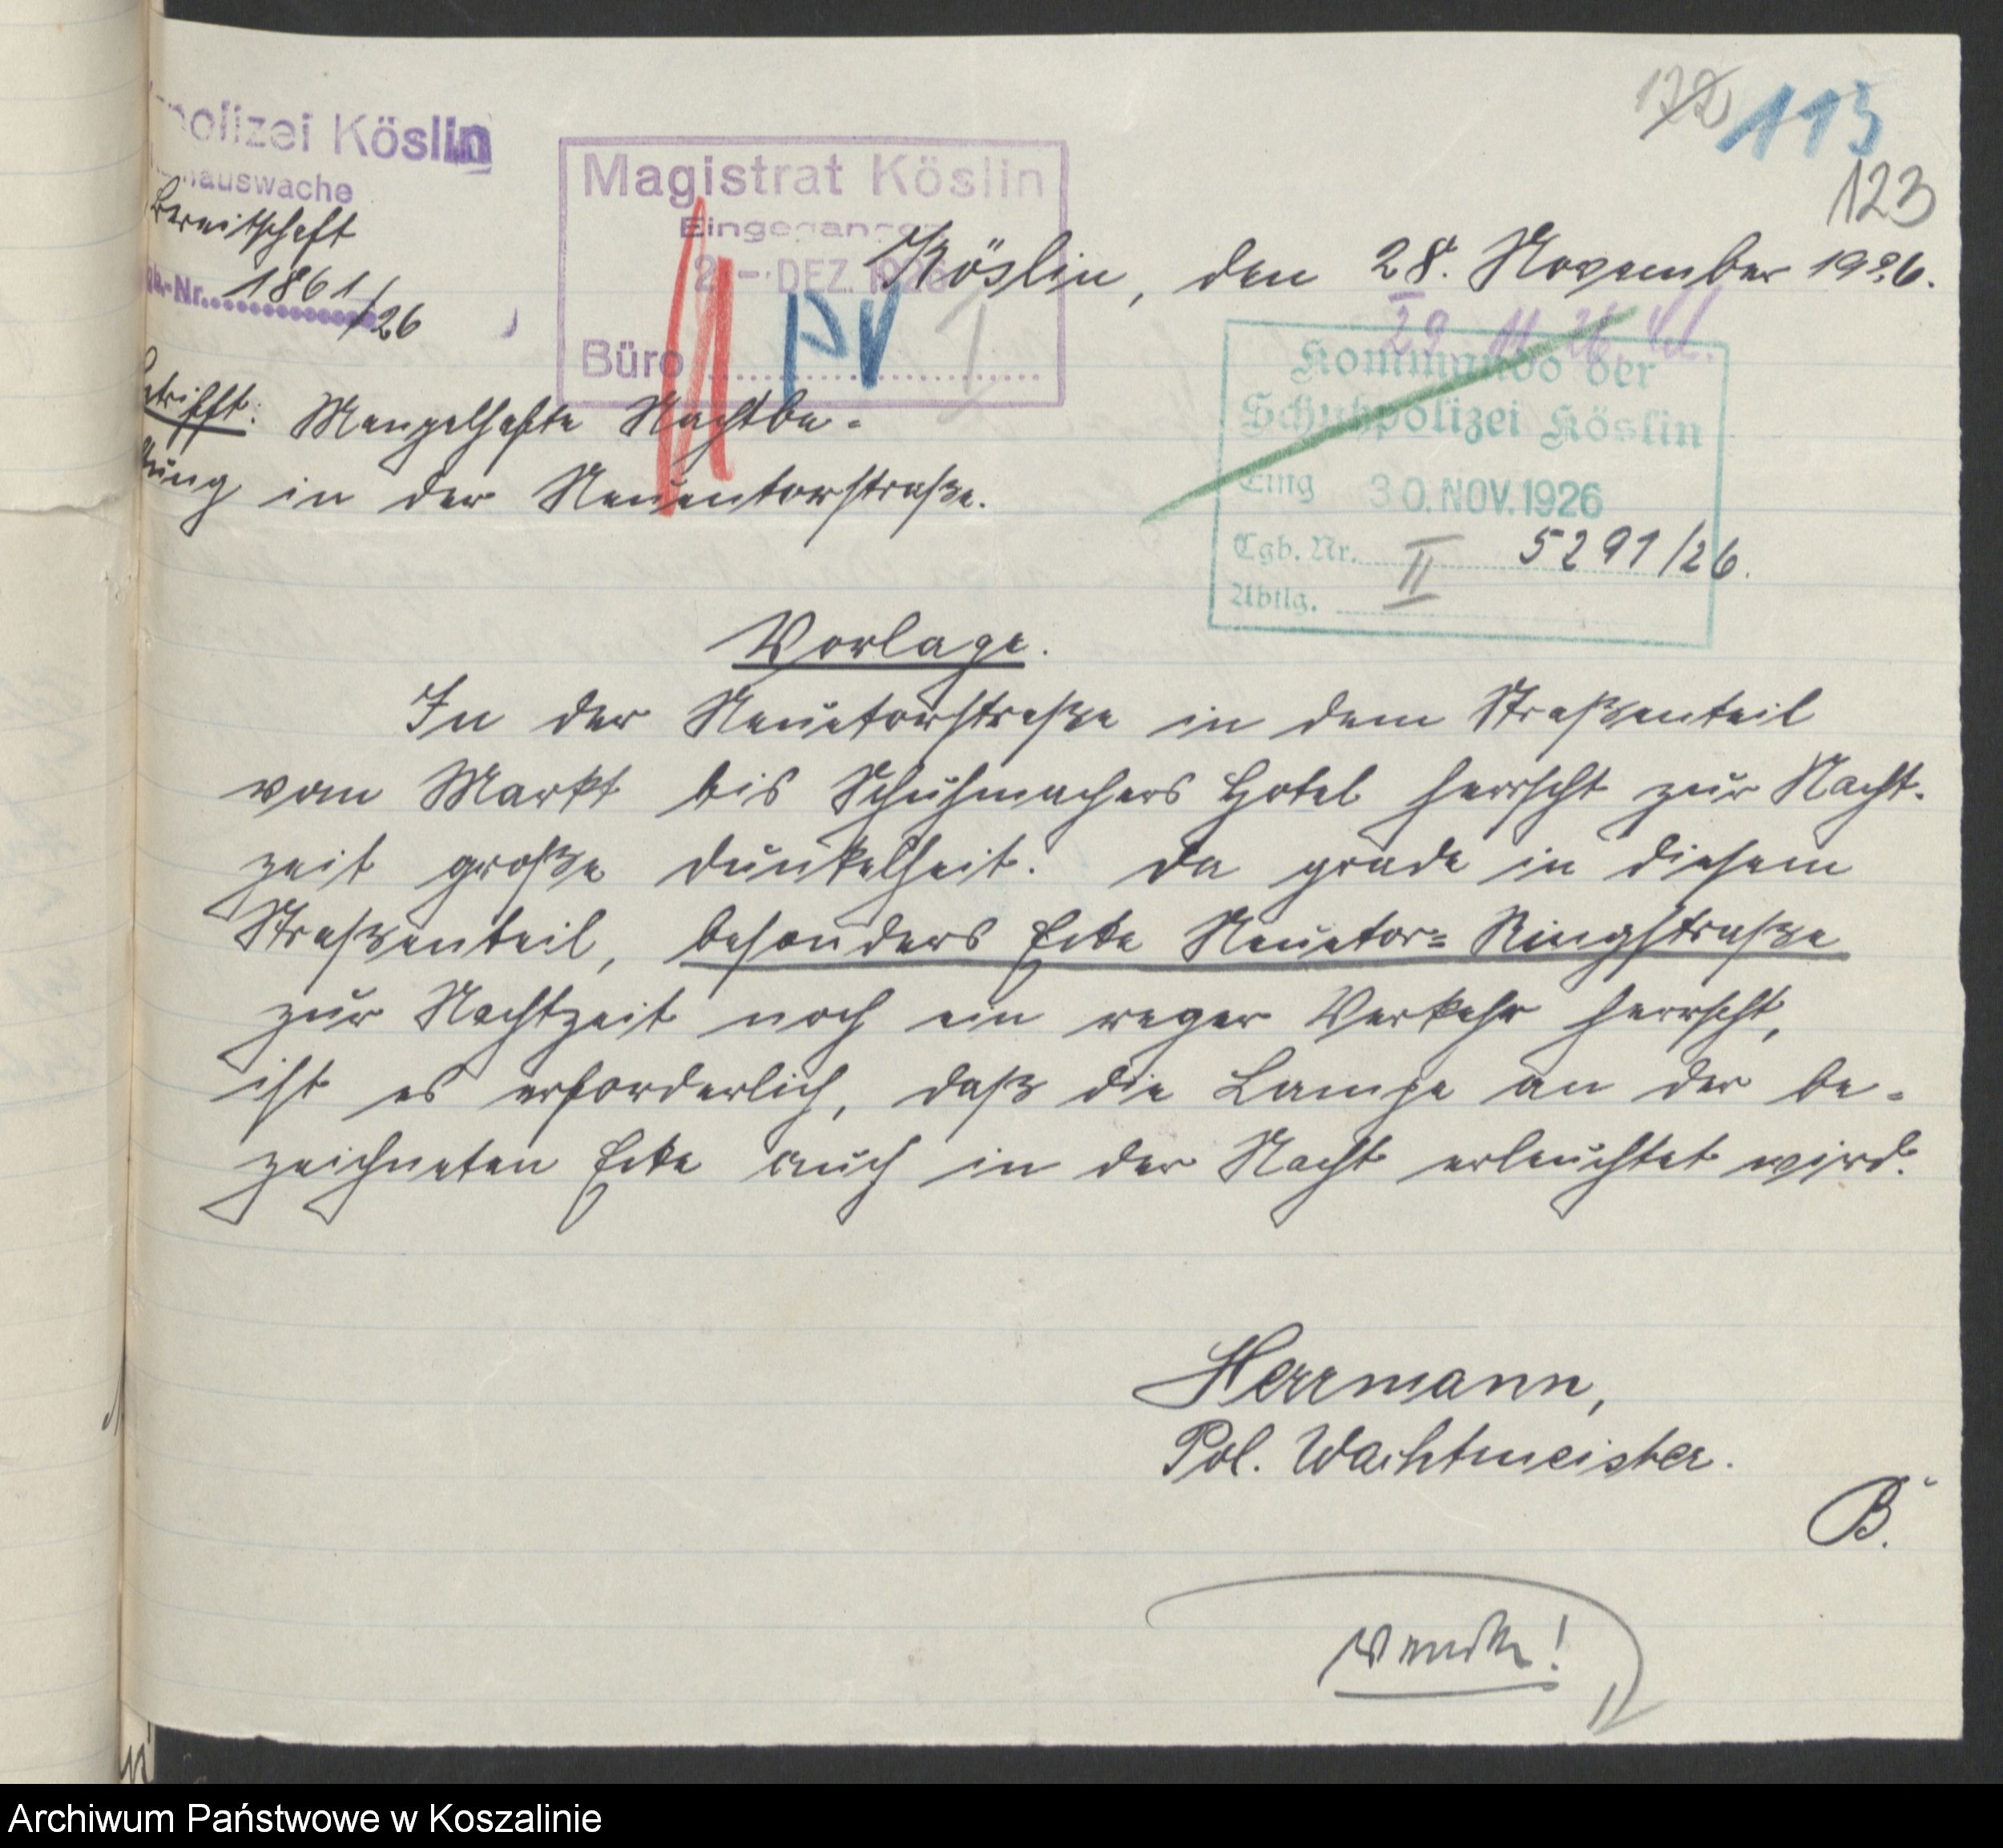 172 113
123
polizei Köslin
hauswache
Bereitschaft
gb.-Nr. 1861/26
Magistrat Köslin
Eingegangen
2 - DEZ. 1926
Büro PV I
Köslin, den 28. November 1926.
29. 11. 26.
Kommando der
Schutzpolizei Köslin
Eing 30. NOV. 1926
Tgb. Nr. II 5291/26.
Abtlg.
etrifft: Mangelhafte Nachtbe-
tung in der Neuentorstraße.
Vorlage.
In der Neuetorstraße in dem Straßenteil
vom Markt bis Schuhmachers Hotel herrscht zur Nacht-
zeit große Dunkelheit. Da grade in diesem
Straßenteil, besonders Ecke Neuetor- Ringstraße
zur Nachtzeit noch ein reger Verkehr herrscht,
ist es erforderlich, daß die Lampe an der be-
zeichneten Ecke auch in der Nacht erleuchtet wird.
Herrmann,
Pol. Wachtmeister.
B.
wenden!
Archiwum Państwowe w Koszalinie